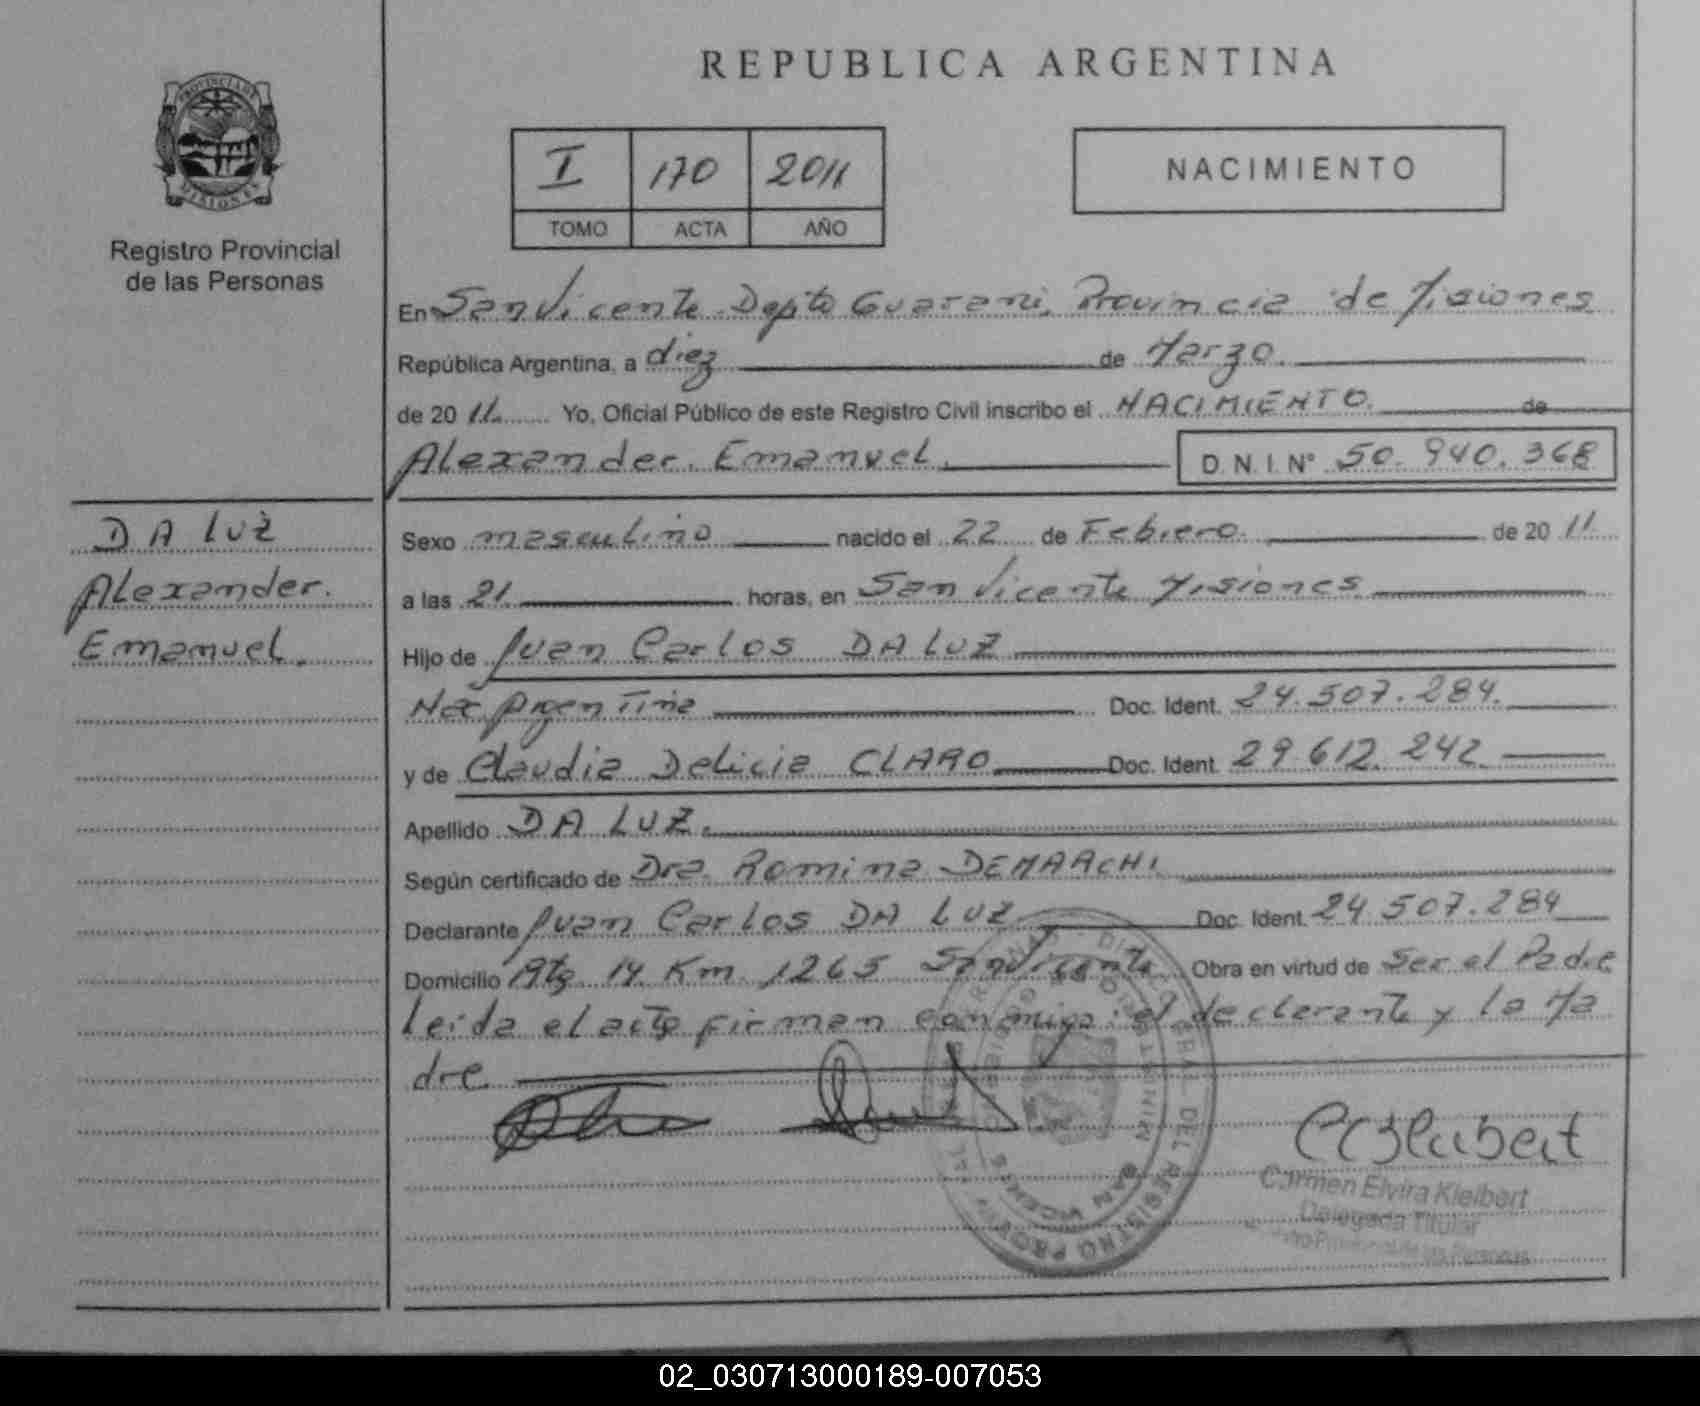 REPUBLICA ARGENTINA
PROVINCIA DE MISIONES
Registro Provincial
de las Personas
I 170 2011
TOMO ACTA AÑO
NACIMIENTO
En San Vicente Depto Guarani, Provincia de Misiones
República Argentina, a diez de Marzo.
de 20 11 Yo, Oficial Público de este Registro Civil inscribo el NACIMIENTO de
Alexander Emanuel. D.N.I. N° 50.940.368
DA LUZ
Alexander.
Emanuel.
Sexo masculino nacido el 22 de Febrero de 20 11
a las 21 horas, en San Vicente Misiones
Hijo de Juan Carlos DA LUZ
Nac Argentina Doc. Ident. 24.507.284.
y de Claudia Delicia CLARO Doc. Ident. 29.612.242.
Apellido DA LUZ.
Según certificado de Dra. Romina DEMARCHI
Declarante Juan Carlos DA LUZ Doc. Ident. 24.507.284
Domicilio Rta. 14 Km. 1265 San Vicente Obra en virtud de Ser el Padre
Leida el acta firman conmigo: el declarante y la Ma
dre.
SAN VICENTE
Carmen Elvira Kleibert
Delegada Titular
Registro Provincial de las Personas
02_030713000189-007053